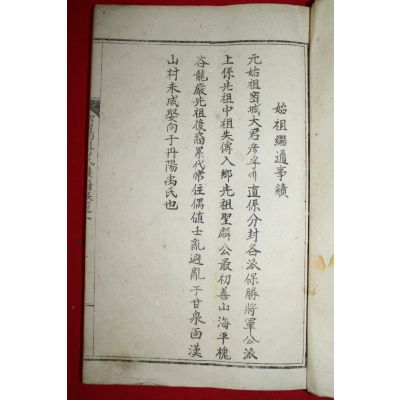 始祖繼通事績
元始祖密城大君彦孚 直係分封各派保勝將軍公派
上係先祖中祖失傳入鄉先祖聖麟公最初善山海平槐
谷龍巖先祖後裔累代常住偶値士亂避亂于甘泉面漢
山村未成娶向于丹陽禹氏也